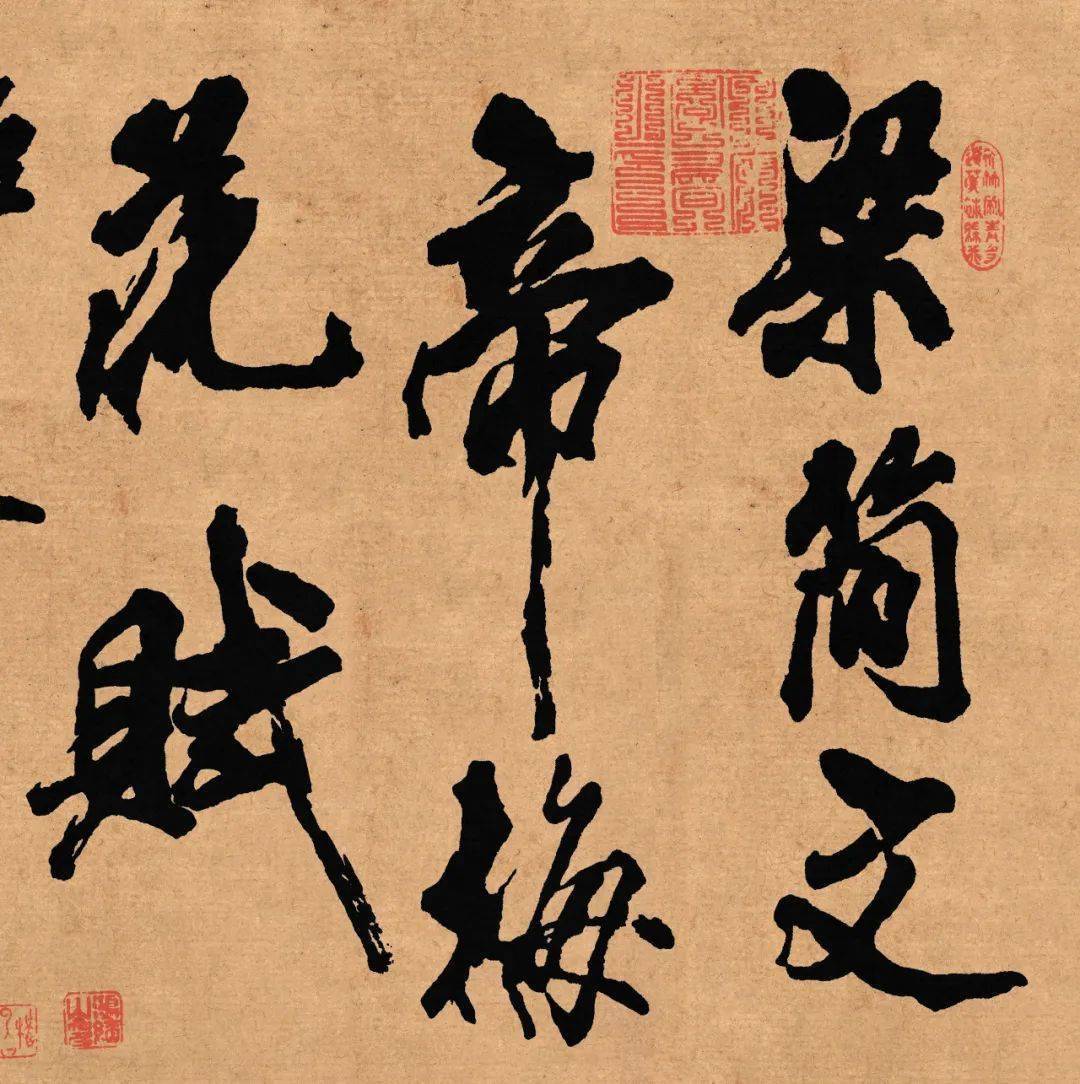 梁簡文
帝梅
花賦